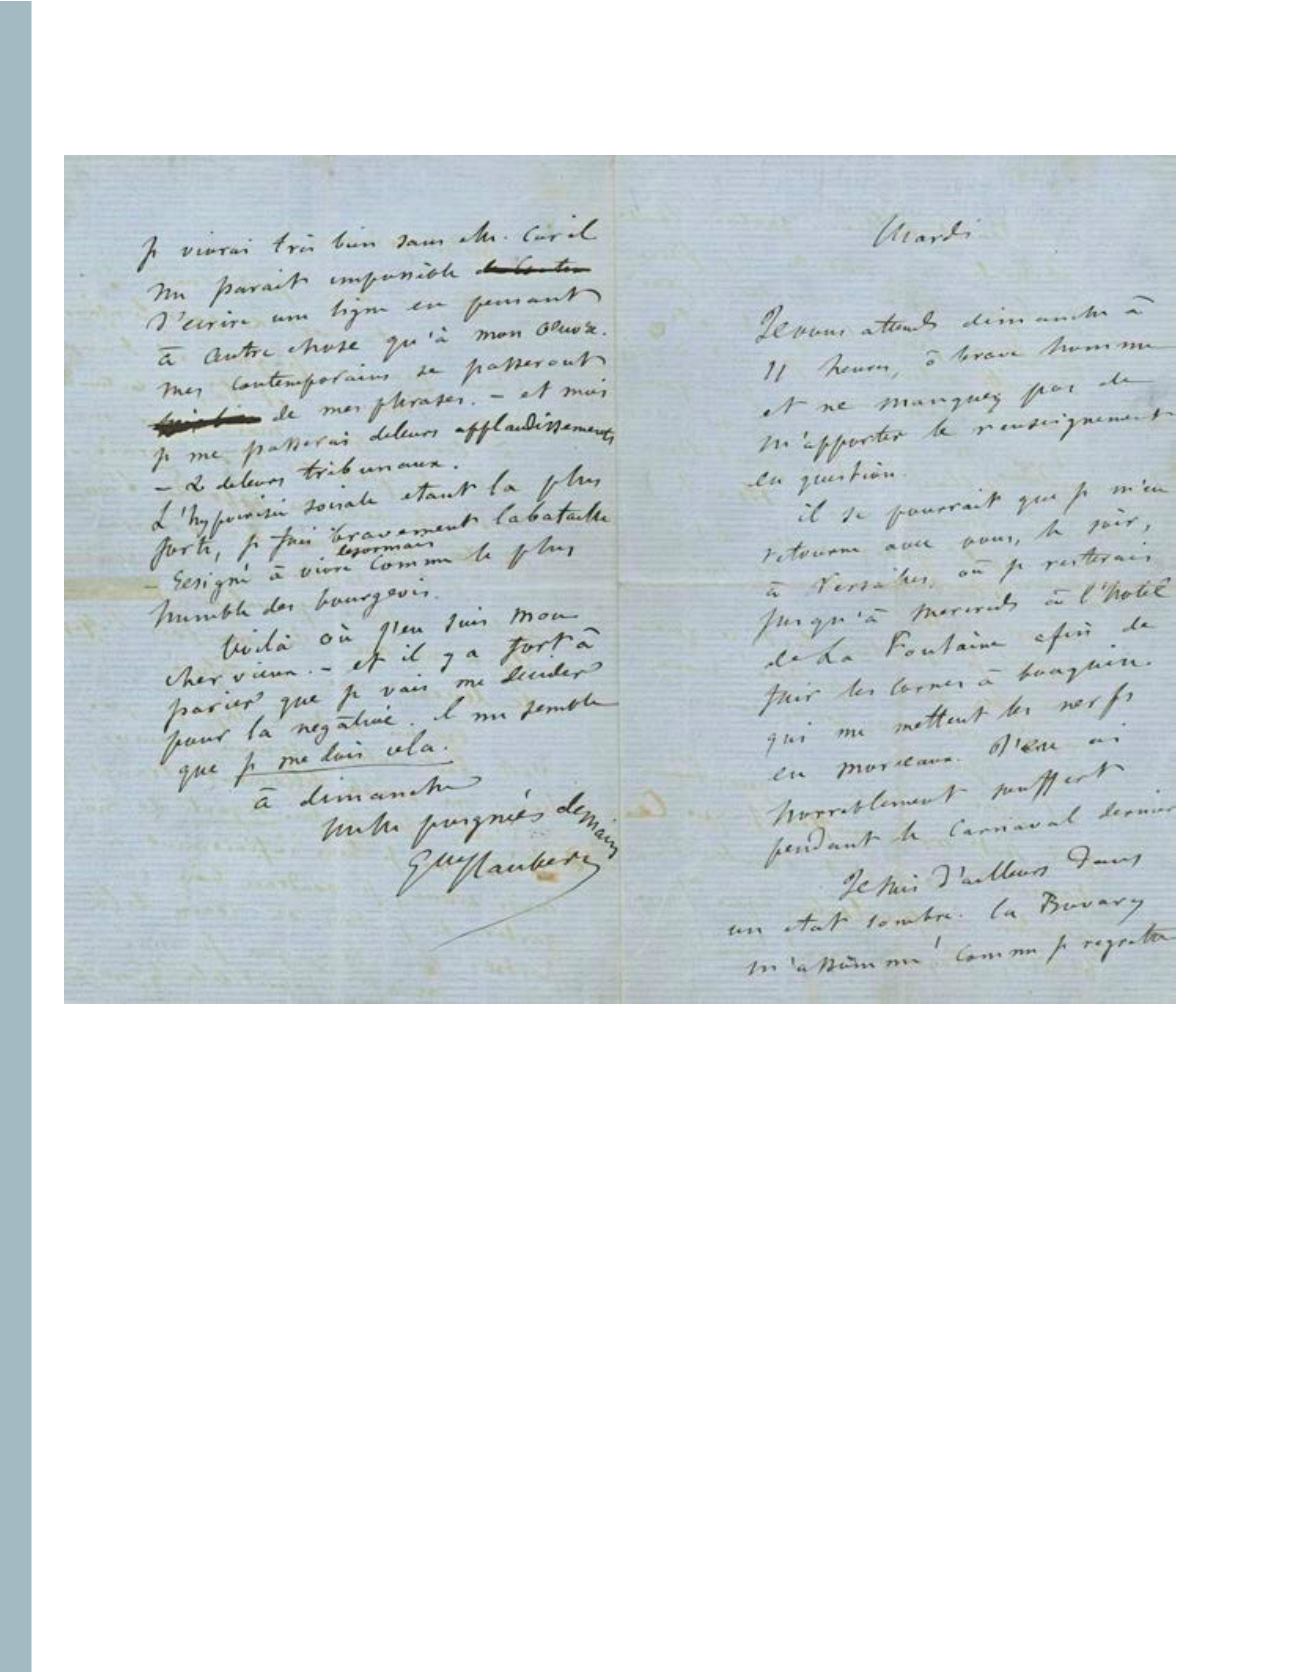 Mardi
Je vous attends dimanche à
11 heures, ô brave homme
et ne manquez pas de
m'apporter le renseignement
en question.
il se pourrait que je m'en
retourne avec vous, le soir,
à Versailles, où je resterais
jusqu'à mercredi à l'hotel
de La Fontaine afin de
fuir les cornes à bouquin.
qui me mettent les nerfs
en morceaux. J'en ai
horriblement souffert
pendant le Carnaval dernier
Je suis d'ailleurs dans
un etat sombre. la Bovary
m'assomme! comme je regrette
je vivrai très bien sans elle. Car il
me parait impossible
d'ecrire une ligne en pensant
à autre chose qu'à mon oeuvre.
mes contemporains se passeront
de mes phrases. – et moi
je me passerai de leurs applaudissements
– & de leurs tribunaux.
L'hypocrisie sociale etant la plus
forte, je fuis bravement la bataille
desormais
– Resigné à vivre comme le plus
humble des bourgeois.
Voilà où j'en suis mon
cher vieux. – et il y a fort à
parier que je vais me decider
pour la negative. il me semble
que je me dois cela.
à dimanche
mille poignées de main
Gve Flaubert